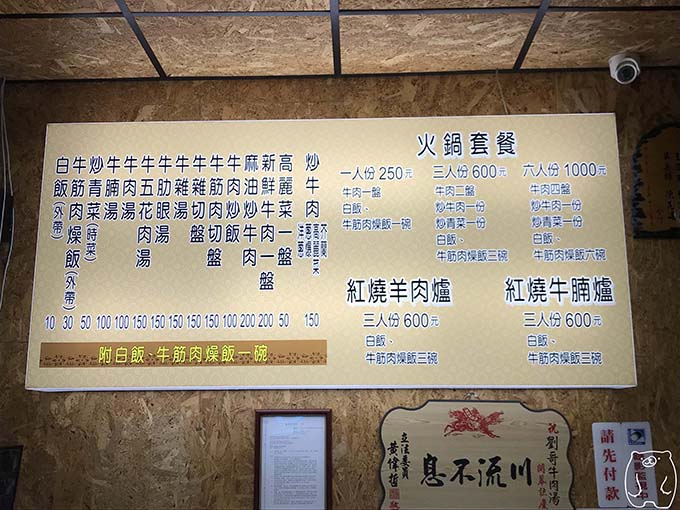 炒牛肉 芥蘭 高麗菜 蔥爆 洋蔥 150
高麗菜一盤 50
新鮮牛肉一盤 200
麻油炒牛肉 200
牛肉炒飯 100
牛筋肉切盤 150
牛雜切盤 150
牛雜湯 150
牛肋眼湯 150
牛五花肉湯 150
牛肉湯 100
牛腩湯 100
炒青菜(時菜) 50
牛筋肉燥飯(外帶) 30
白飯(外帶) 10
附白飯、牛筋肉燥飯一碗
火鍋套餐
一人份 250元
牛肉一盤
白飯、
牛筋肉燥飯一碗
三人份 600元
牛肉二盤
炒牛肉一份
炒青菜一份
白飯、
牛筋肉燥飯三碗
六人份 1000元
牛肉四盤
炒牛肉一份
炒青菜一份
白飯、
牛筋肉燥飯六碗
紅燒羊肉爐
三人份 600元
白飯、
牛筋肉燥飯三碗
紅燒牛腩爐
三人份 600元
白飯、
牛筋肉燥飯三碗
祝
劉哥牛肉湯
開幕誌慶
息不流川
立法委員
黃偉哲
請先付款